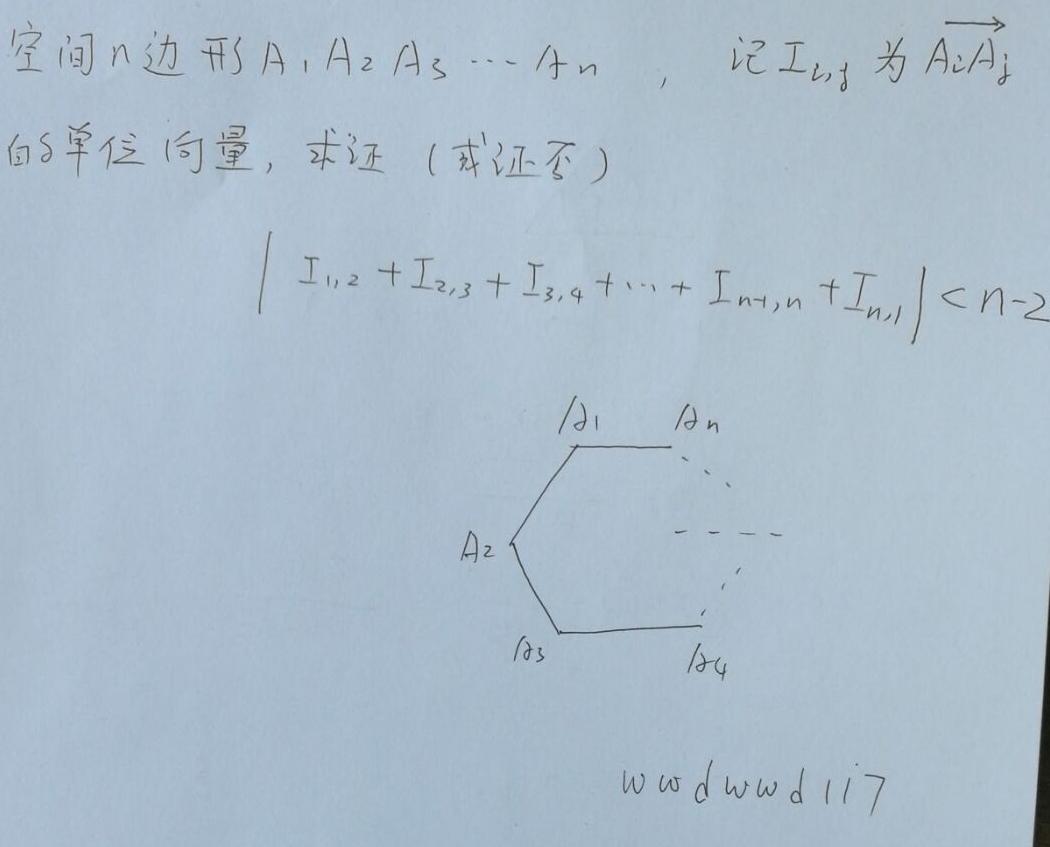 空间n边形A₁A₂A₃…Aₙ，记I_{i,j}为\overrightarrow{A_iA_j}
的单位向量，求证（或证否）
|I_{1,2}+I_{2,3}+I_{3,4}+…+I_{n-1,n}+I_{n,1}|<n-2
A₁ Aₙ
A₂
A₃ A₄
wwdwwd117